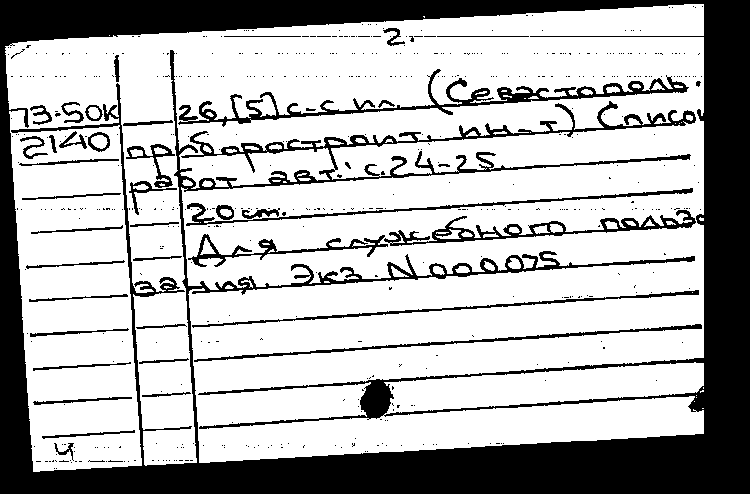 2.
73-50К 26,[5] с-с ил. (Севастополь.
2140 приборостроит. ин-т) Список
работ авт.: с.24-25.
20 cm.
Для служебного пользо
вания. Экз. N000075.
4